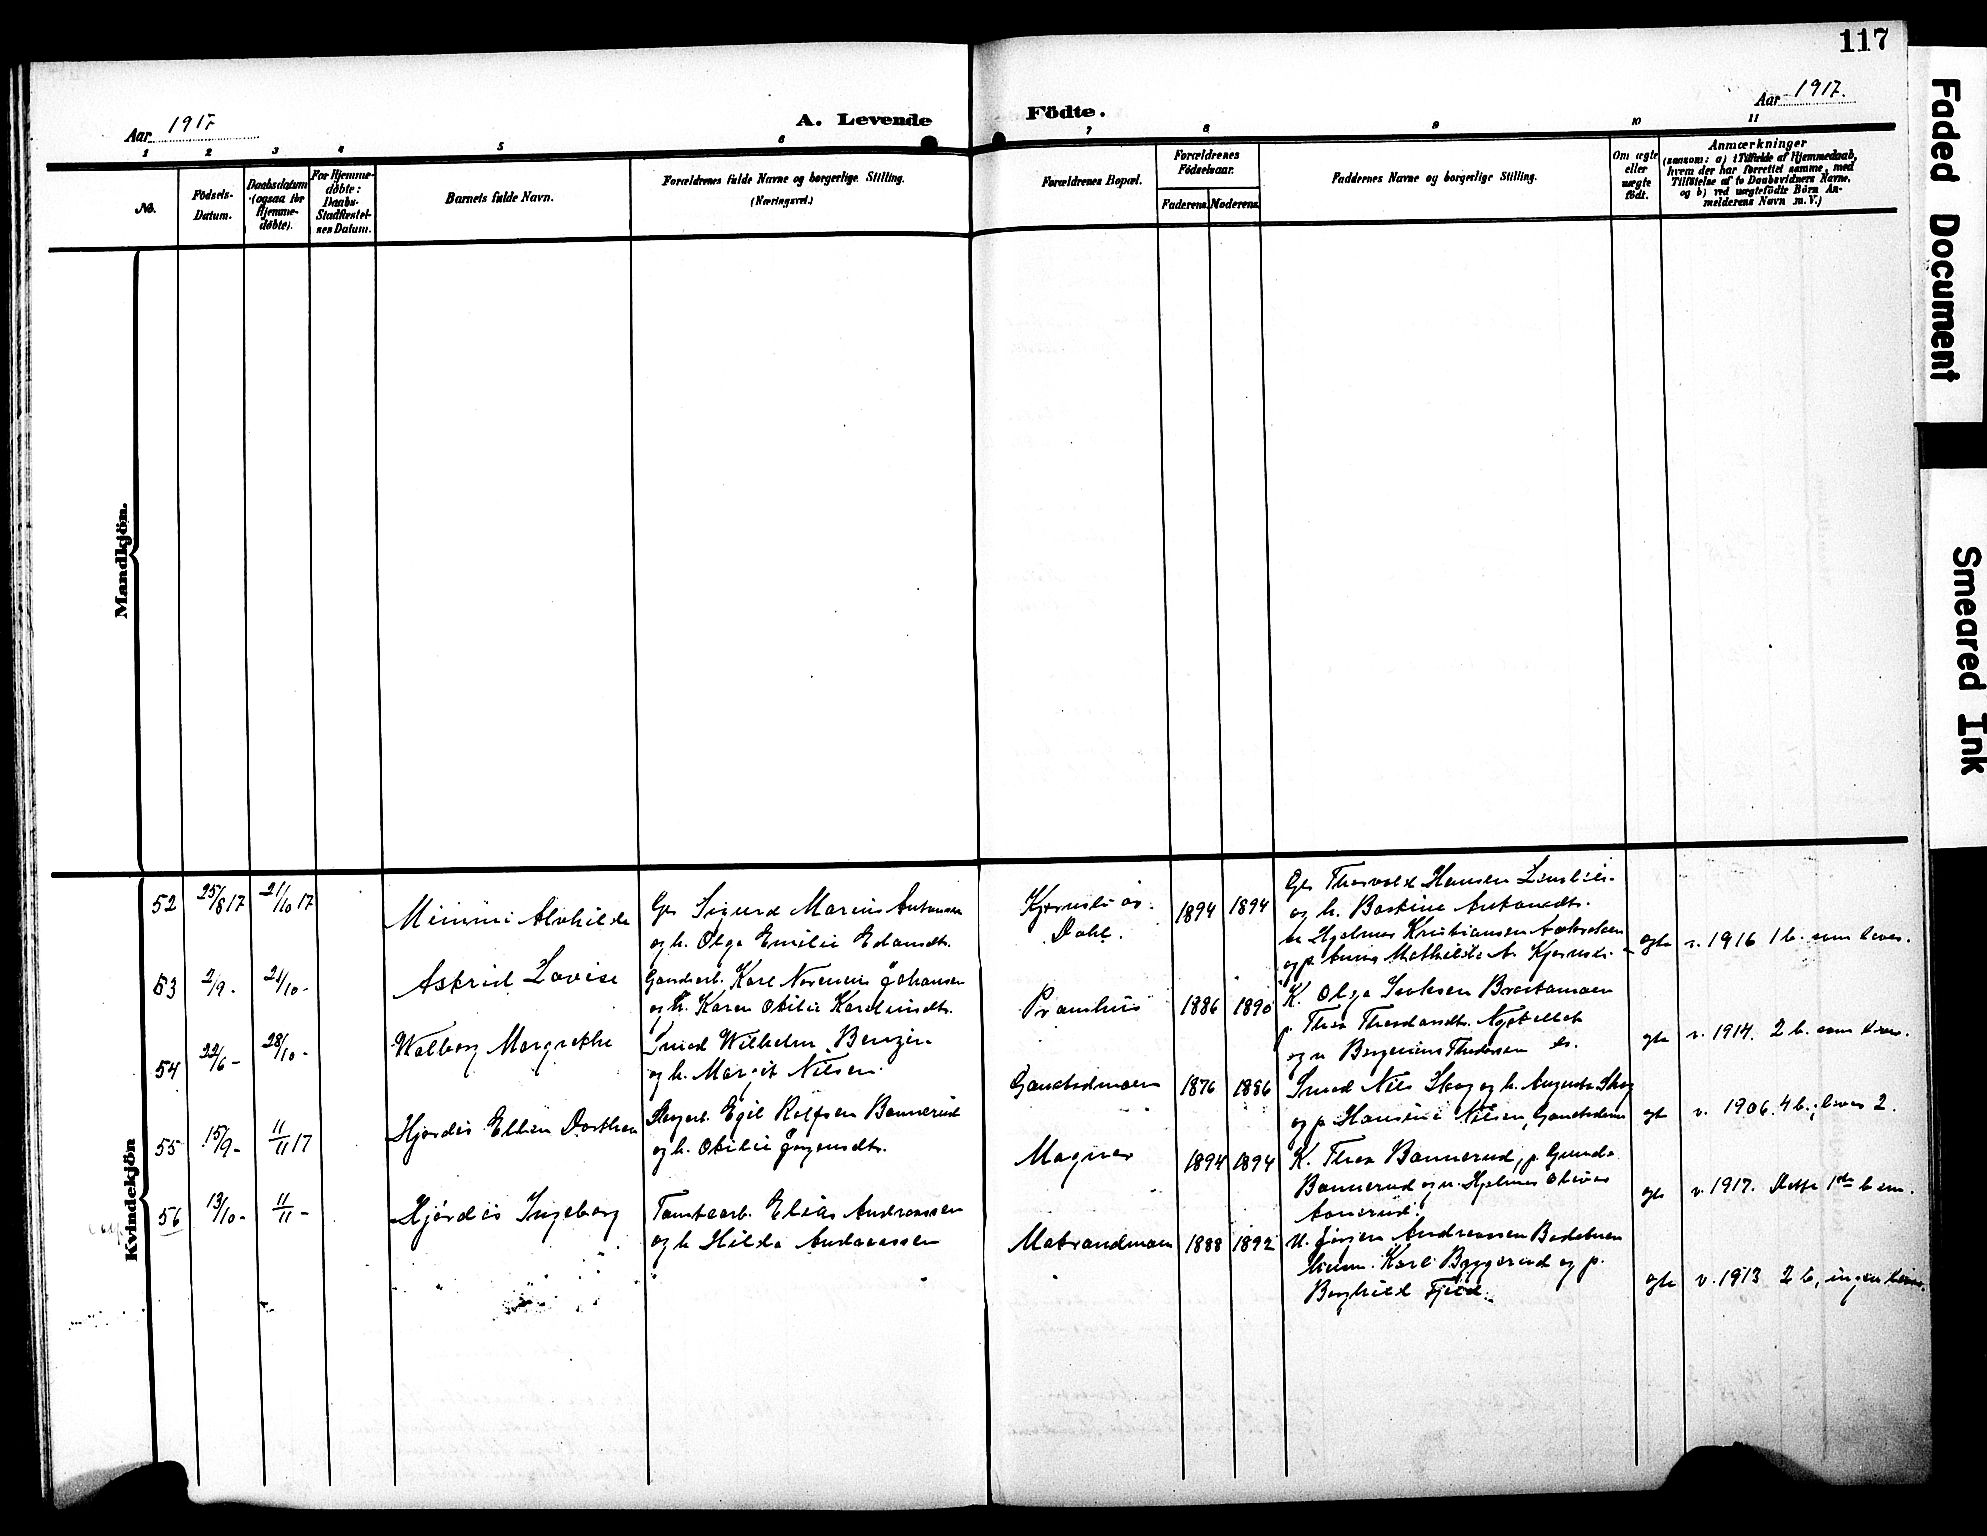 117
Aar 1917
A. Levende
Födte.
Aar 1917.
1 2 3 4 5 6 7 8 9 10 11
No.
Födsels-
Datum.
Daabsdatum
(ogsaa for
Hjemme-
døbte).
For Hjemme-
døbte:
Daabs-
Stadfæstel-
ses Datum.
Barnets fulde Navn.
Forældrenes fulde Navne og borgerlige Stilling.
(Næringsvei.)
Forældrenes Bopæl.
Forældrenes
Födselsaar.
Faderens.
Moderens.
Faddernes Navne og borgerlige Stilling.
Om ægte
eller
uægte
født.
Anmærkninger
(saasom: a) i Tilfælde af Hjemmedaab,
hvem der har forrettet samme, med
Tilføielse af to Daabsvidners Navne,
og b) ved uægtefödte Börn An-
melderens Navn m. V.)
Mandkjön.
Kvindekjön
52 25/8 17 21/10 17
Mimmi Alvhilde
Gs Sigurd Marius Antonsen
og h. Olga Emilie
Dahl.
1894 1894
Gs Thorvald Hansen
og h. Bastine
Hjelmer Kristiansen
og p. Anna Mathilde
egte v. 1916 1 b. som lever.
53 2/9 - 21/10 -
Astrid Lovise
Karl Johansen
og h. Karen Otilie
Pramhus
1886 1890
K. Olga
p. Thea
og u
egte v. 1914. 2 b. som lever.
54 22/6 - 28/10 -
Walborg Margrethe
Smed Wilhelm
og h. Margit Nilsen
1876 1886
Smed Nils Skog og h. Augusta Skog
og p Hansine Nilsen,
egte v. 1906. 4 b., lever 2.
55 15/9 - 11/11 17
Hjørdis Ellen Dorthea
Egil Rolfsen Bonnerud
og h. Otilie
Magnor
1894 1894
K. Thea Bonnerud, p. Gunda
Bonnerud og u. Hjelmer
egte v. 1917. Dette 1ste b.
56 13/10 - 11/11 -
Hjørdis Ingeborg
Tomtearb. Elias Andreassen
og h Hilda Andreassen
Matrandmoen 1888 1892
U. Jørgen Andreassen
Karl og p.
Borghild Fjeld.
egte v. 1913 2 b, ingen lever.
Faded Document
Smeared Ink